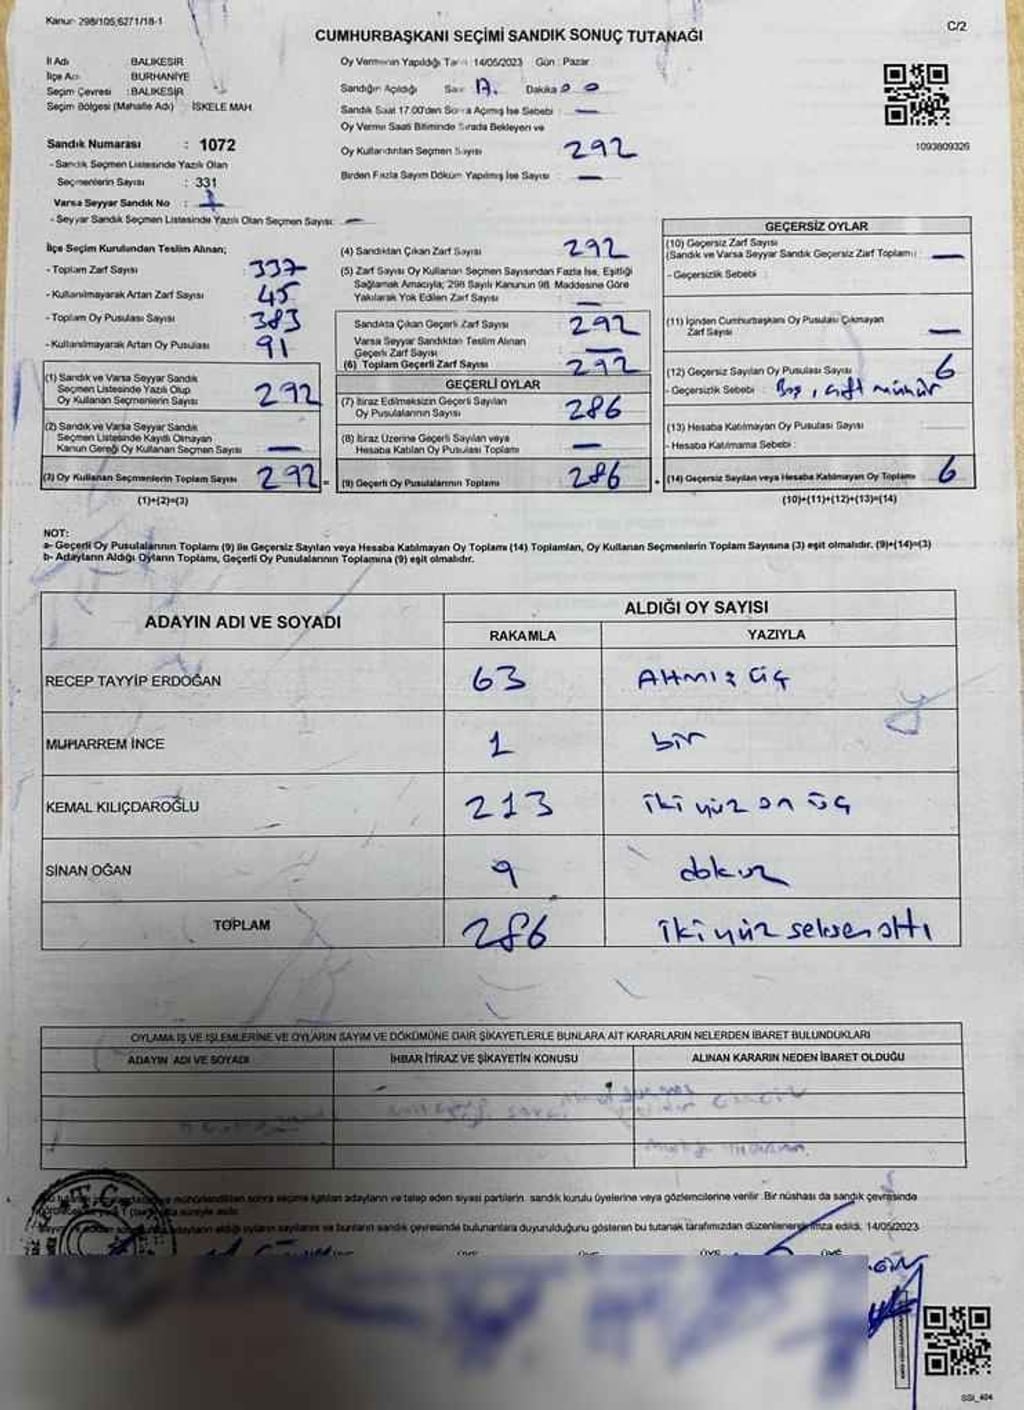 Kanun- 298/105;6271/18-1
C/2
CUMHURBAŞKANI SEÇİMİ SANDIK SONUÇ TUTANAĞI
İl Adı BALIKESİR
İlçe Adı BURHANİYE
Seçim Çevresi : BALIKESİR
Seçim Bölgesi (Mahalle Adı) : İSKELE MAH
Sandık Numarası : 1072
- Sandık Seçmen Listesinde Yazılı Olan
Seçmenlerin Sayısı : 331
Varsa Seyyar Sandık No :
- Seyyar Sandık Seçmen Listesinde Yazılı Olan Seçmen Sayısı: —
Oy Vermenin Yapıldığı Tarih 14/05/2023 Gün : Pazar
Sandığın Açıldığı Saat Dakika 0 0
Sandık Saat 17.00'den Sonra Açılmış İse Sebebi : —
Oy Verme Saati Bitiminde Sırada Bekleyen ve
Oy Kullandırılan Seçmen Sayısı 292
Birden Fazla Sayım Döküm Yapılmış İse Sayısı —
1093809326
İlçe Seçim Kurulundan Teslim Alınan;
- Toplam Zarf Sayısı 337
- Kullanılmayarak Artan Zarf Sayısı 45
- Toplam Oy Pusulası Sayısı 383
- Kullanılmayarak Artan Oy Pusulası 91
(1) Sandık ve Varsa Seyyar Sandık
Seçmen Listesinde Yazılı Olup
Oy Kullanan Seçmenlerin Sayısı 292
(2) Sandık ve Varsa Seyyar Sandık
Seçmen Listesinde Kayıtlı Olmayan
Kanun Gereği Oy Kullanan Seçmen Sayısı —
(3) Oy Kullanan Seçmenlerin Toplam Sayısı 292 =
(1)+(2)=(3)
(4) Sandıktan Çıkan Zarf Sayısı 292
(5) Zarf Sayısı Oy Kullanan Seçmen Sayısından Fazla İse, Eşitliği
Sağlamak Amacıyla; 298 Sayılı Kanunun 98. Maddesine Göre
Yakılarak Yok Edilen Zarf Sayısı —
Sandıkta Çıkan Geçerli Zarf Sayısı 292
Varsa Seyyar Sandıktan Teslim Alınan
Geçerli Zarf Sayısı —
(6) Toplam Geçerli Zarf Sayısı 292
GEÇERLİ OYLAR
(7) İtiraz Edilmeksizin Geçerli Sayılan
Oy Pusulalarının Sayısı 286
(8) İtiraz Üzerine Geçerli Sayılan veya
Hesaba Katılan Oy Pusulası Toplamı —
(9) Geçerli Oy Pusulalarının Toplamı 286 +
GEÇERSİZ OYLAR
(10) Geçersiz Zarf Sayısı
(Sandık ve Varsa Seyyar Sandık Geçersiz Zarf Toplamı) —
- Geçersizlik Sebebi :
(11) İçinden Cumhurbaşkanı Oy Pusulası Çıkmayan
Zarf Sayısı —
(12) Geçersiz Sayılan Oy Pusulası Sayısı 6
- Geçersizlik Sebebi : Boş, çift mühür
(13) Hesaba Katılmayan Oy Pusulası Sayısı
- Hesaba Katılmama Sebebi :
(14) Geçersiz Sayılan veya Hesaba Katılmayan Oy Toplamı 6
(10)+(11)+(12)+(13)=(14)
NOT:
a- Geçerli Oy Pusulalarının Toplamı (9) ile Geçersiz Sayılan veya Hesaba Katılmayan Oy Toplamı (14) Toplamları, Oy Kullanan Seçmenlerin Toplam Sayısına (3) eşit olmalıdır. (9)+(14)=(3)
b- Adayların Aldığı Oyların Toplamı, Geçerli Oy Pusulalarının Toplamına (9) eşit olmalıdır.
ADAYIN ADI VE SOYADI ALDIĞI OY SAYISI
RAKAMLA YAZIYLA
RECEP TAYYİP ERDOĞAN 63 Altmış üç
MUHARREM İNCE 1 bir
KEMAL KILIÇDAROĞLU 213 iki yüz on üç
SİNAN OĞAN 9 dokuz
TOPLAM 286 iki yüz seksen altı
OYLAMA İŞ VE İŞLEMLERİNE VE OYLARIN SAYIM VE DÖKÜMÜNE DAİR ŞİKAYETLERLE BUNLARA AİT KARARLARIN NELERDEN İBARET BULUNDUKLARI
ADAYIN ADI VE SOYADI İHBAR İTİRAZ VE ŞİKAYETİN KONUSU ALINAN KARARIN NEDEN İBARET OLDUĞU
mühürlendikten sonra seçime katılan adayların ve talep eden siyasi partilerin, sandık kurulu üyelerine veya gözlemcilerine verilir. Bir nüshası da sandık çevresinde
adayların aldığı oyların sayılarını ve bunların sandık çevresinde bulunanlara duyurulduğunu gösteren bu tutanak tarafımızdan düzenlenerek imza edildi. 14/05/2023
T.C.
ÜYE ÜYE ÜYE ÜYE
SSİ_404